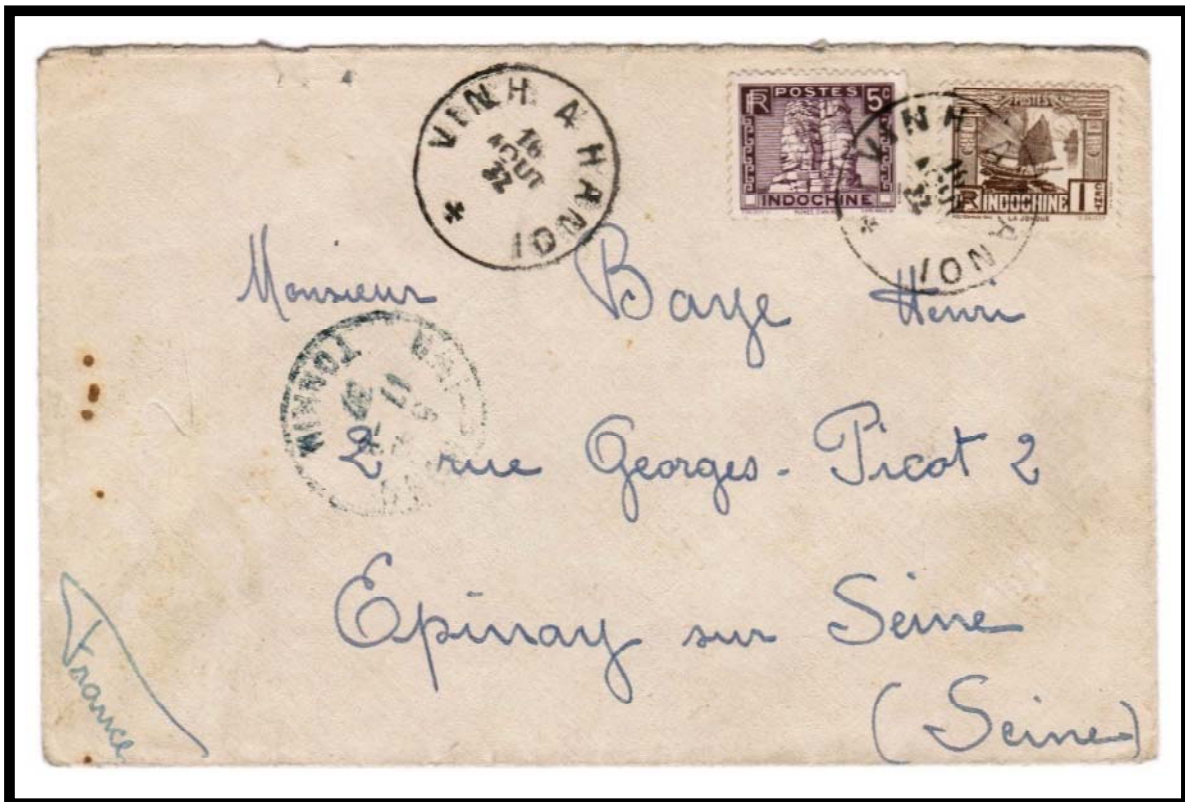 VINH A HANOI
16
AOUT
32
RF POSTES 5c
INDOCHINE
POSTES
RF INDOCHINE 1
CENT
LA JONQUE
VINH A HANOI
16
AOUT
32
Monsieur Baye Henri
TONKIN
2 rue Georges-Picot 2
Epinay sur Seine
(Seine)
France